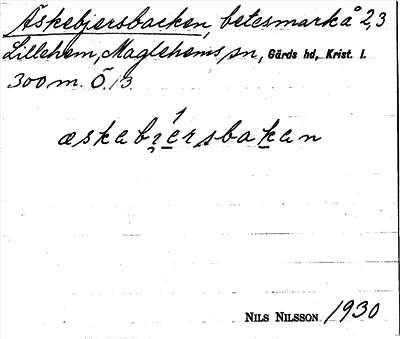 Äskebjersbacken, betesmark å 2,3
Lillehem, Maglehems sn, Gärds hd, Krist. l.
300 m. Ö. 13.
æskabi̯ersbakan
NILS NILSSON 1930